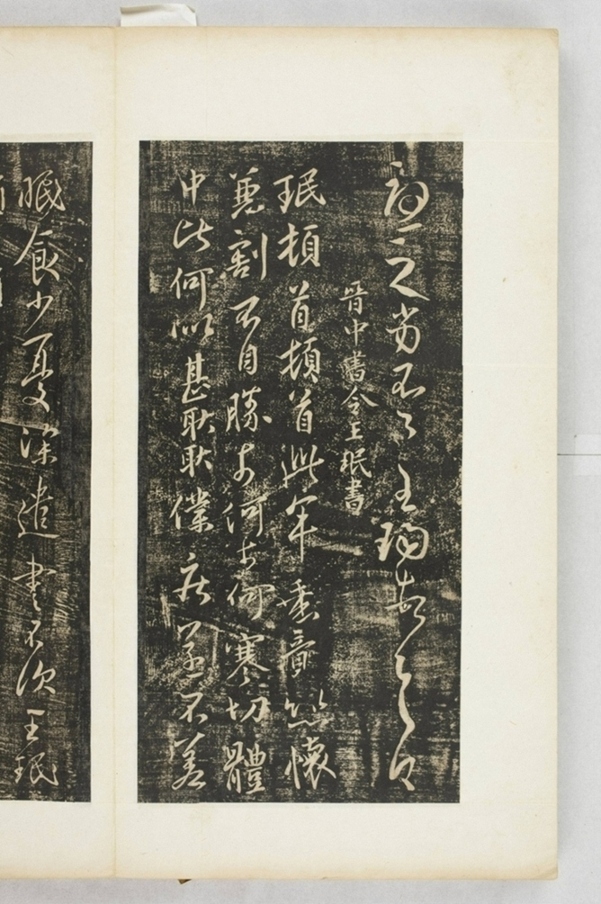 之當不 王珣
晉中書令王珉書
珉頓首頓首此年垂竟悲懷
兼割不自勝奈何奈何寒切體
中比何似甚耿耿僕疾遂不差
眠食少憂深遣書不次王珉